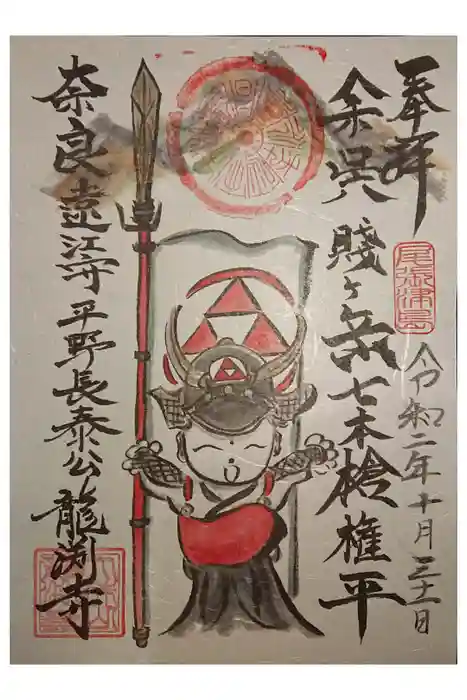 奉拝
令和二年十月三十一日
余呉
賤ヶ岳七本槍権平
奈良遠江守平野長泰公龍渕寺